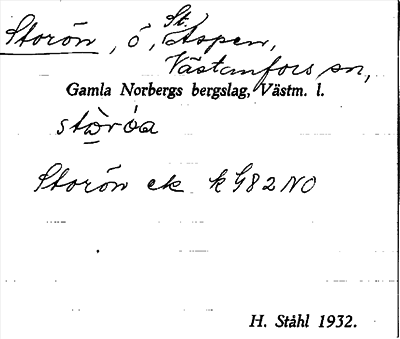 Storön, ö, St. Aspen,
Västanfors sn,
Gamla Norbergs bergslag, Västm. l.
Storön ek k G82 NO
H. Ståhl 1932.